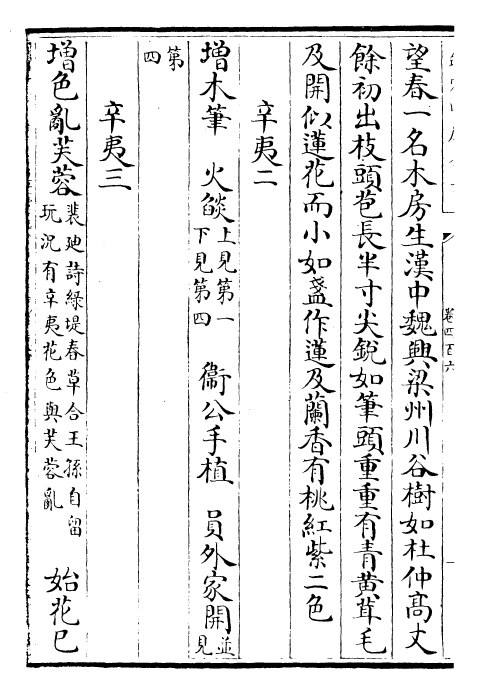 望春一名木房生漢中魏興梁州川谷樹如杜仲髙丈
餘初出枝頭苞長半寸尖銳如筆頭重重有青黄茸毛
及開似蓮花而小如盞作蓮及蘭香有桃紅紫二色
辛夷二
增木筆　火燄上見第一下見第四　衞公手植　員外家開並見
第四
辛夷三
增色亂芙蓉裴廸詩綠堤春草合王孫自留玩況有辛夷花色與芙蓉亂　始花巳
卷四百六